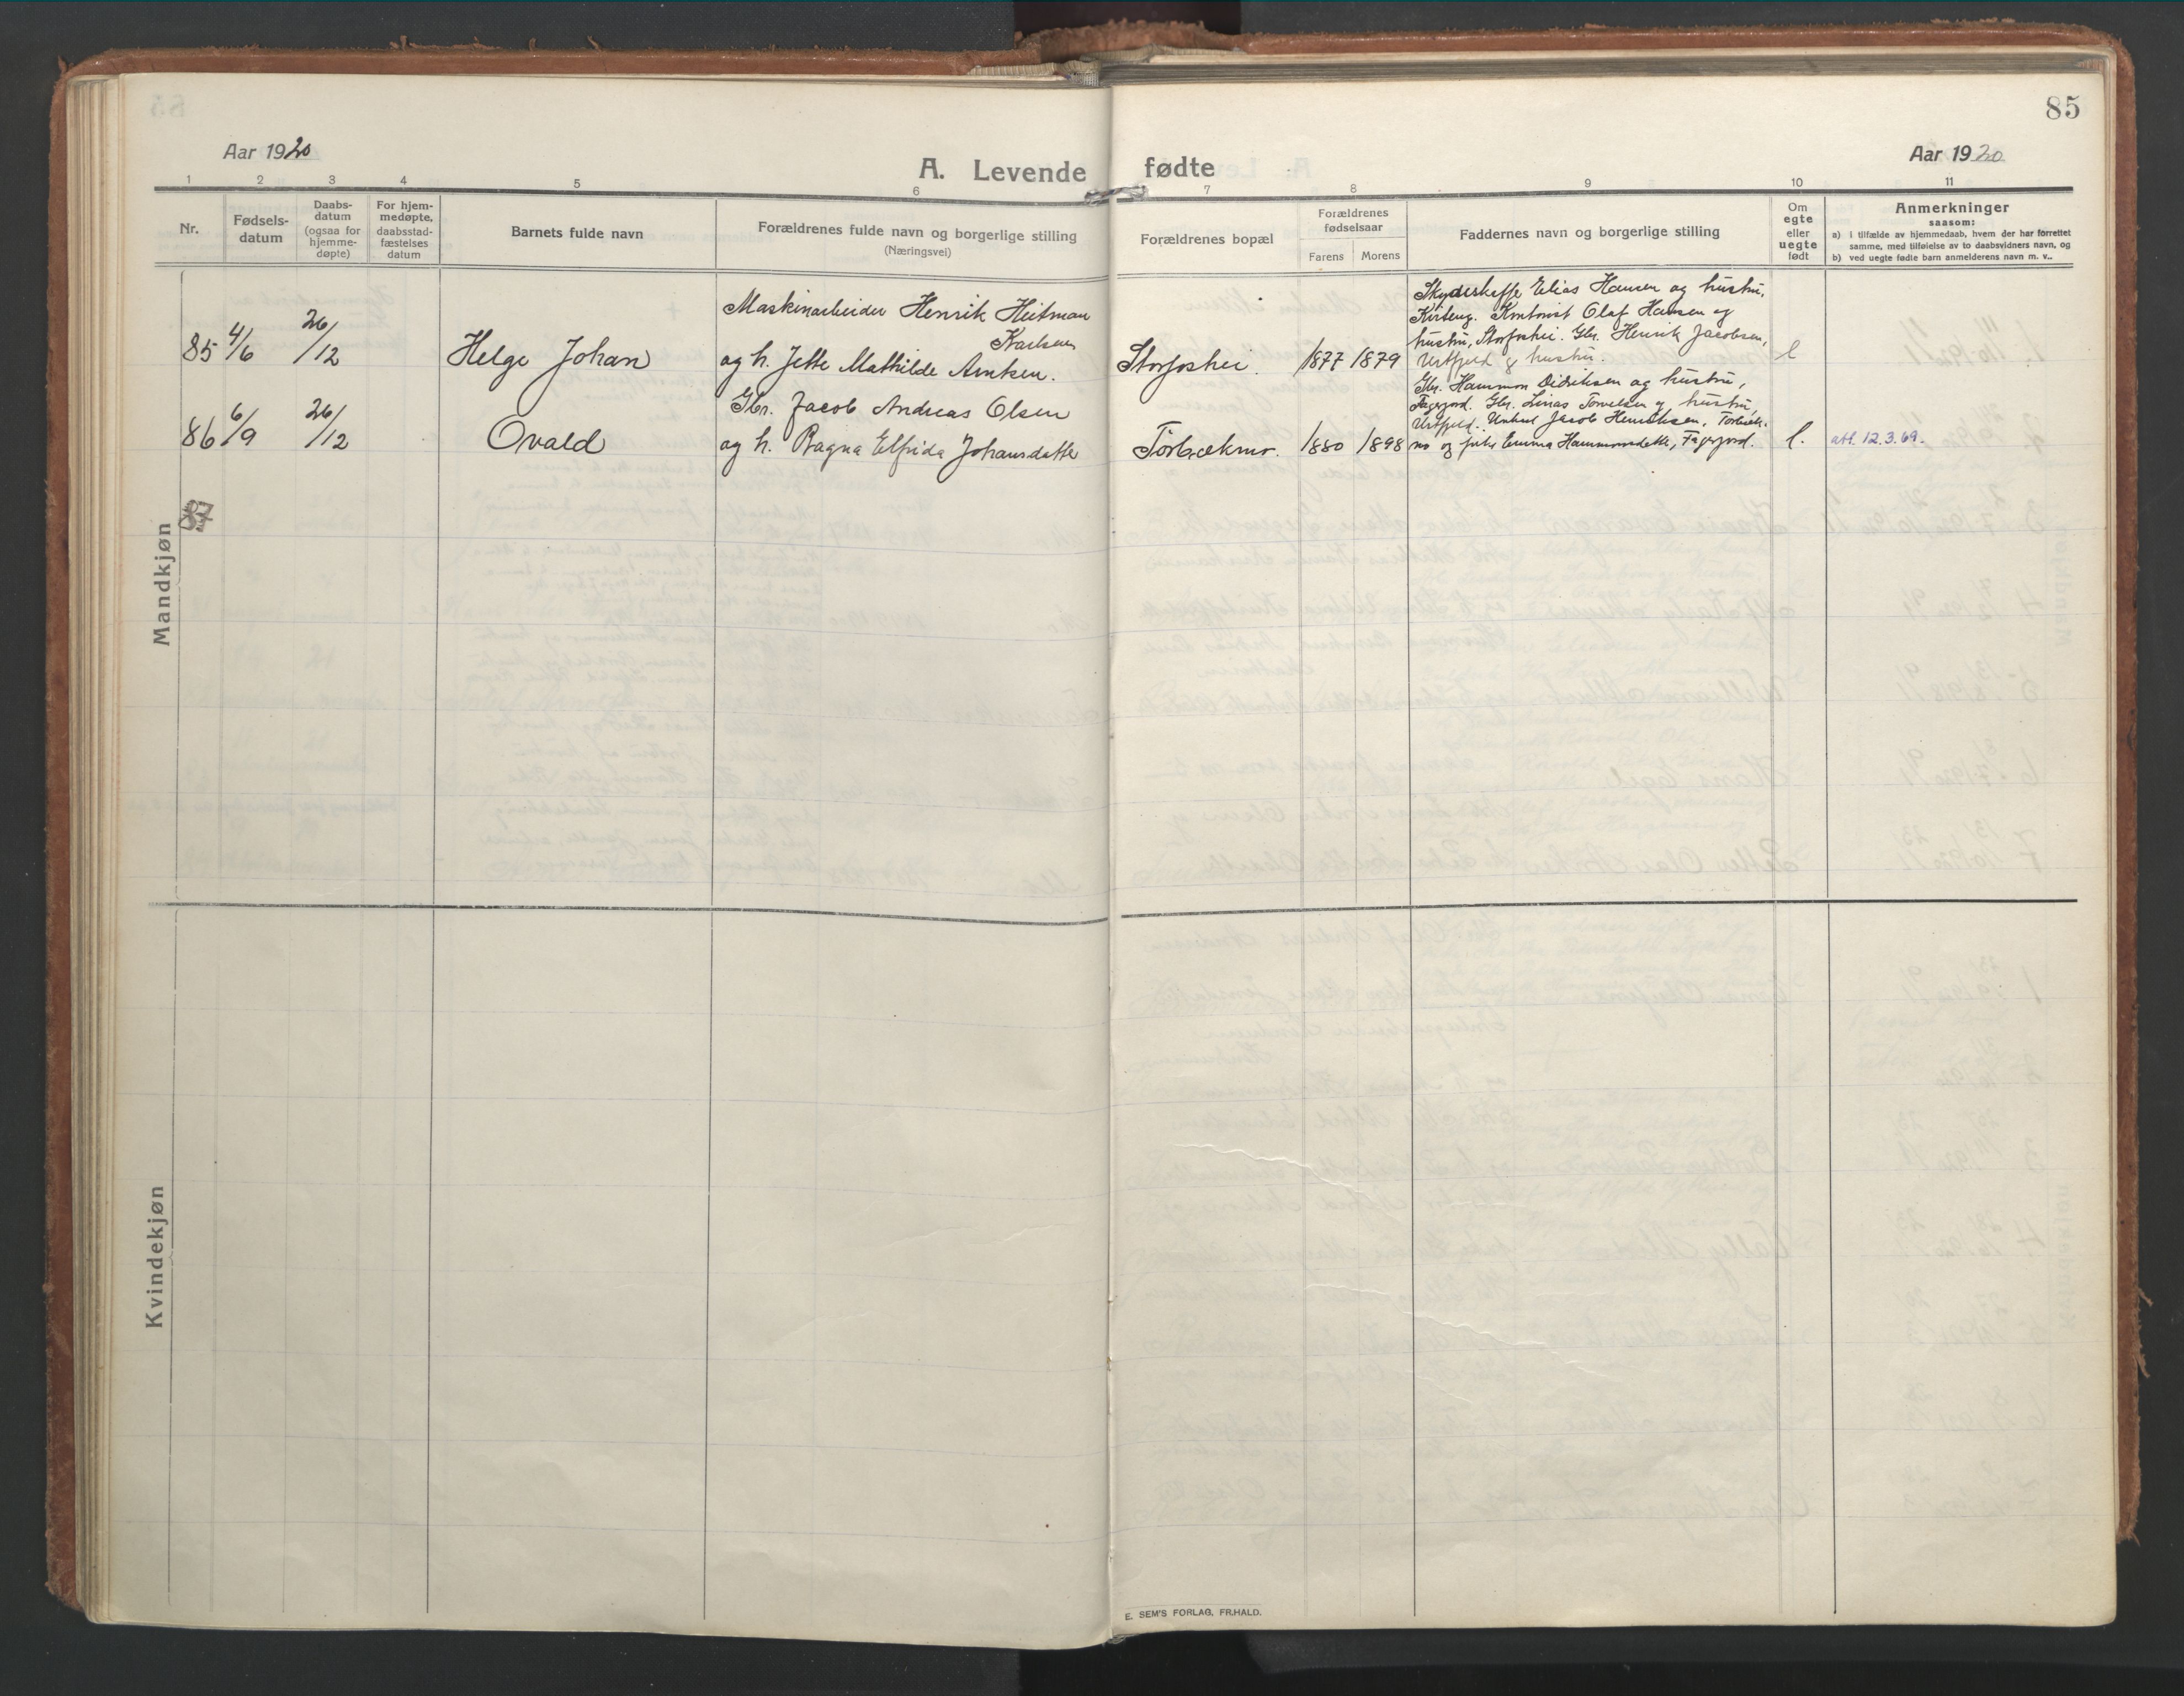 85
Aar 1920
A. Levende fødte
Aar 1920
1 2 3 4 5 6 7 8 9 10 11
Nr.
Fødsels-
datum
Daabs-
datum
(ogsaa for
hjemme-
døpte)
For hjem-
medøpte,
daabsstad-
fæstelses
datum
Barnets fulde navn
Forældrenes fulde navn og borgerlige stilling
(Næringsvei)
Forældrenes bopæl
Forældrenes
fødselsaar
Farens Morens
Faddernes navn og borgerlige stilling
Om
egte
eller
uegte
født
Anmerkninger
saasom:
a) i tilfælde av hjemmedaab, hvem der har forrettet
samme, med tilføielse av to daabsvidners navn, og
b) ved uegte fødte barn anmelderens navn m. v..
Mandkjøn
85 4/6 26/12 Helge Johan
Maskinarbeider Henrik Heitman
Karlsen
og h. Jette Mathilde Arntsen.
Storfoshei. 1877 1879
Skydeskaffe Elias Hansen og hustru,
Kontorist Olaf Hansen og
hustru, Storfoshei. Gbr. Henrik Jacobsen,
Urtfjeld og hustru.
86 6/9 26/12 Ovald
Gbr. Jacob Andreas Olsen
og h. Ragna Elfrida Johansdatter
Torbækmo. 1880 1898
Gbr. Hammon Didriksen og hustru,
Fagerjord. Gbr. Linas og hustru,
Urtfjeld. Unkarl Jacob Henriksen, Torbæk-
mo og Emma Hammonsdatter, Fagerjord.
att. 12.3.69.
87
Kvindekjøn
E. SEM'S FORLAG, FR.HALD.